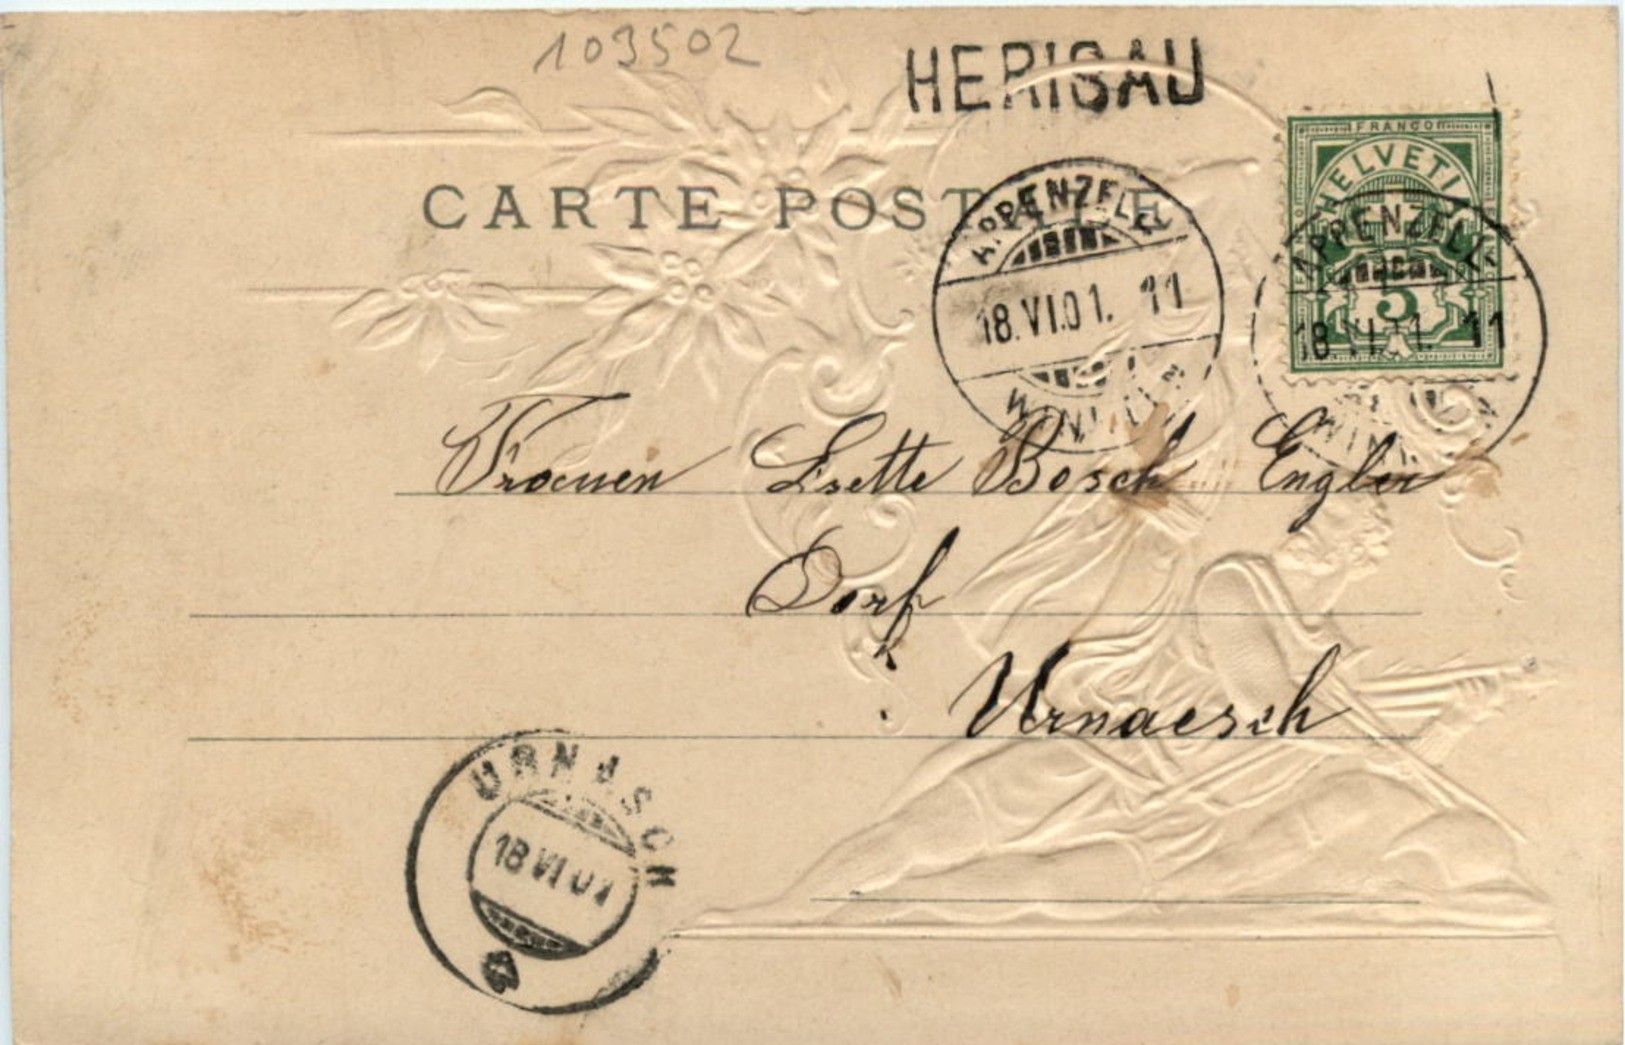 103502
HERISAU
CARTE POSTALE
APPENZELL
18.VI.01. 11
FRANCO
HELVETIA
5
APPENZELL
18.VI.01. 11
Frauen Lisette Bosch Engler
Dorf
Urnaesch
URNÄSCH
18 VI 01